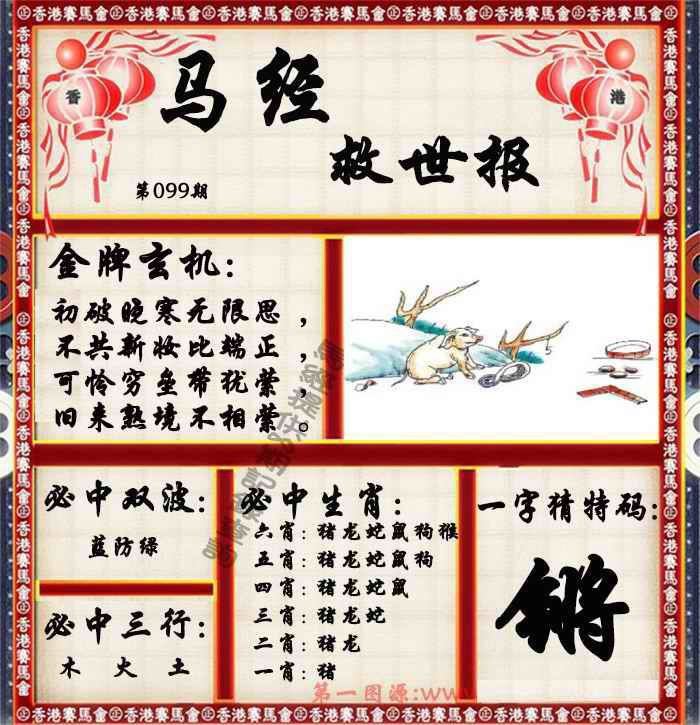 香港賽馬會
香 港
马经
救世报
第099期
金牌玄机:
初破晓寒无限思，
不共新妆比端正，
可怜穷垒带犹萦，
旧来熟境不相萦。
必中双波:
蓝防绿
必中三行:
木 火 土
必中生肖:
六肖: 猪龙蛇鼠狗猴
五肖: 猪龙蛇鼠狗
四肖: 猪龙蛇鼠
三肖: 猪龙蛇
二肖: 猪龙
一肖: 猪
一字猜特码:
锵
第一图源:www